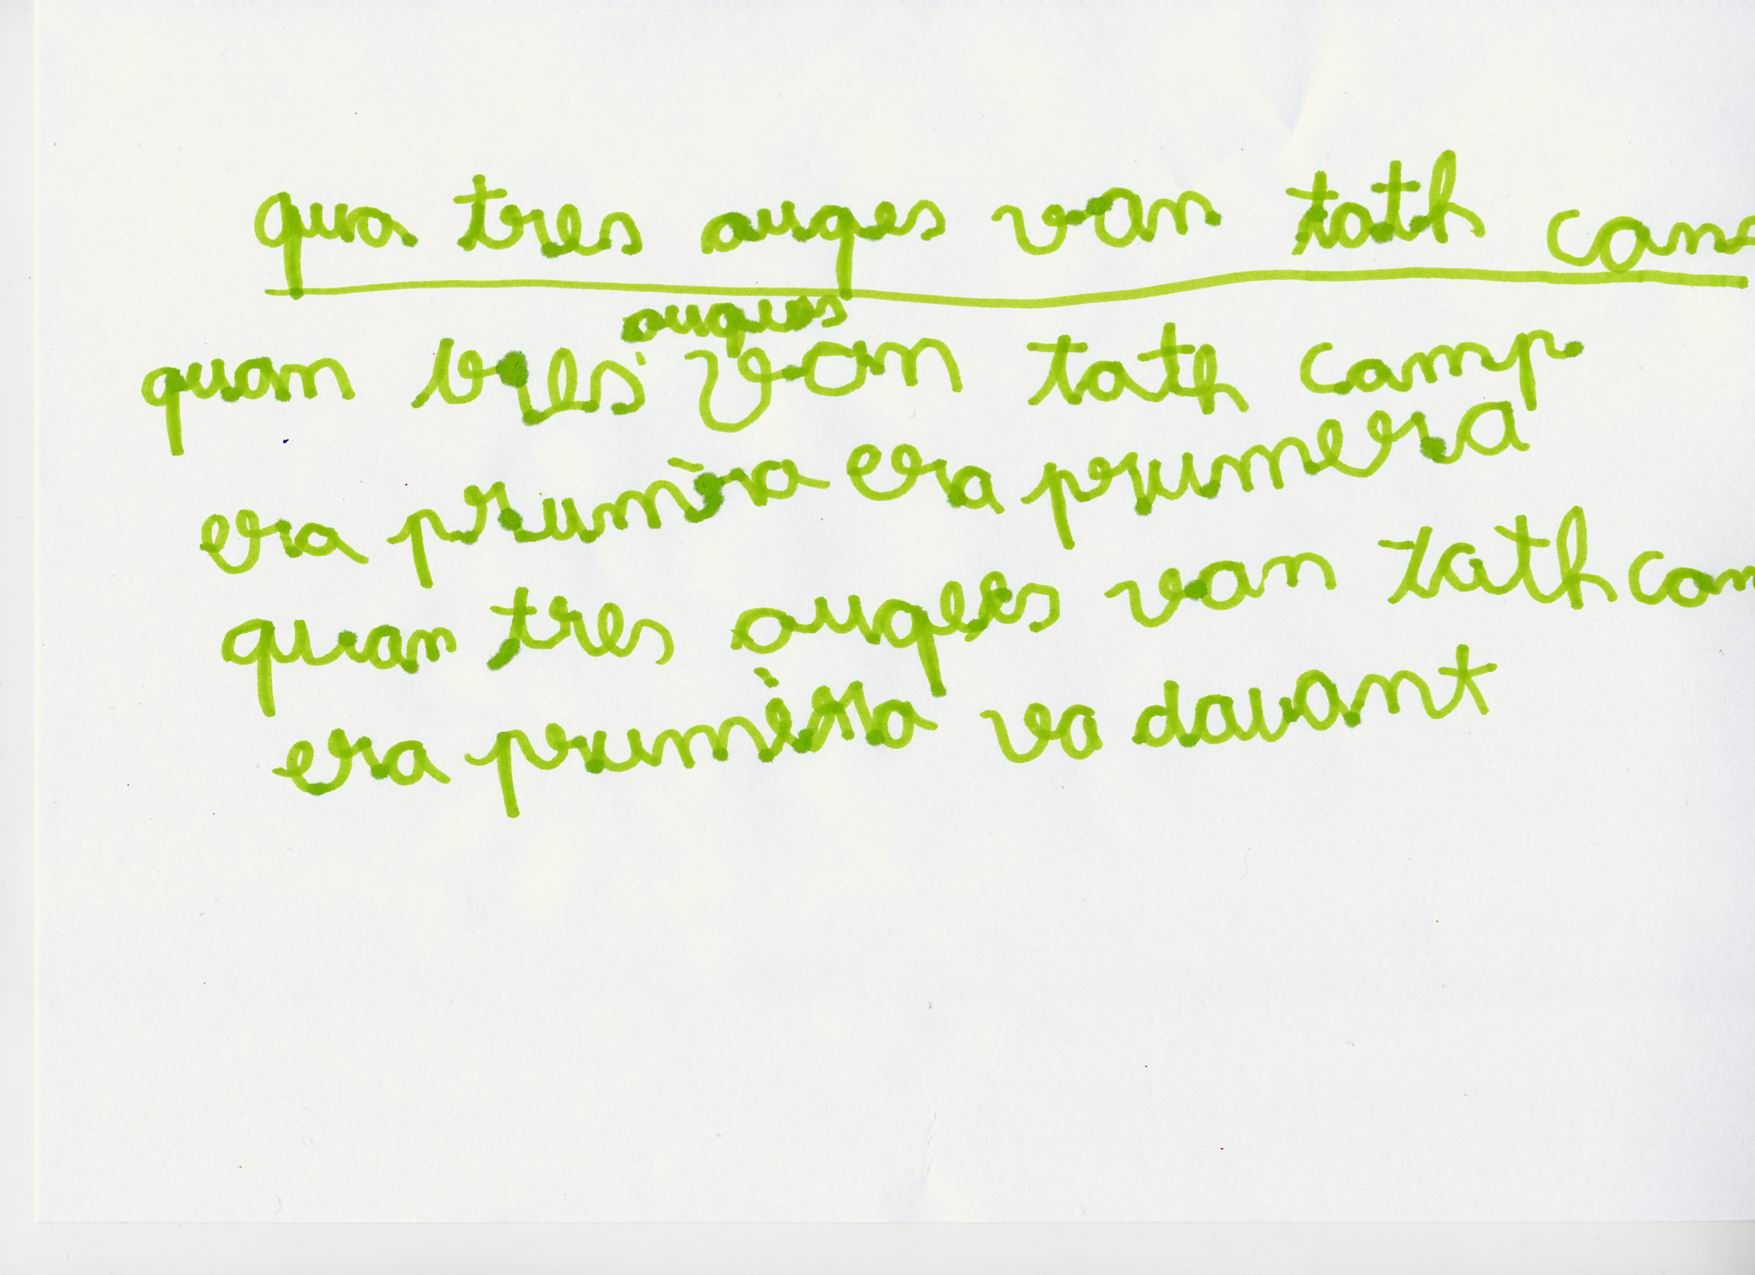 qua tres auqes van tath cam
auques
quan tres van tath camp
era prumèra era prumera
quan tres auques van tath cam
era prumèra va davant